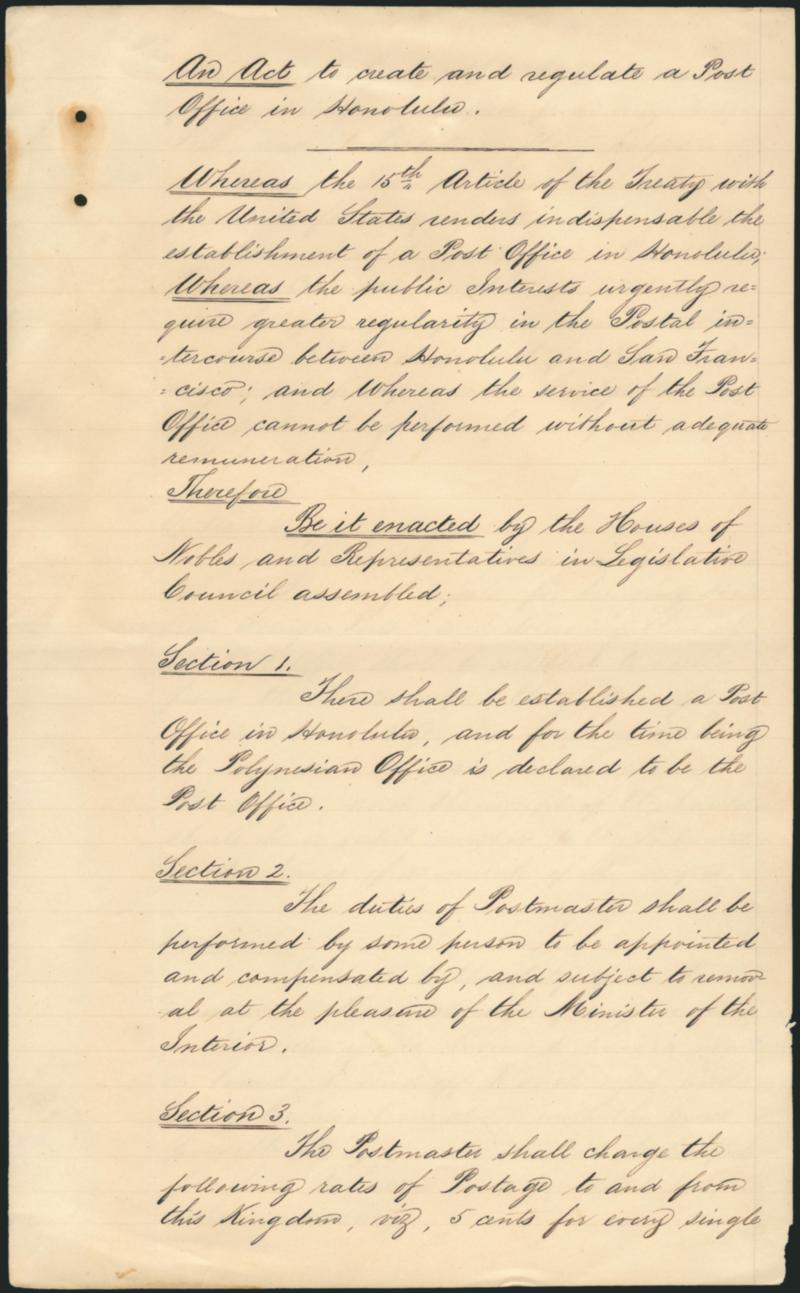 An Act to create and regulate a Post
Office in Honolulu.
Whereas the 15th Article of the Treaty with
the United States renders indispensable the
establishment of a Post Office in Honolulu;
Whereas the public Interests urgently re=
quire greater regularity in the Postal in=
=tercourse between Honolulu and San Fran=
=cisco; and Whereas the service of the Post
Office cannot be performed without adequate
remuneration,
Therefore
Be it enacted by the Houses of
Nobles and Representatives in Legislative
Council assembled;
Section 1.
There shall be established a Post
Office in Honolulu, and for the time being
the Polynesian Office is declared to be the
Post Office.
Section 2.
The duties of Postmaster shall be
performed by some person to be appointed
and compensated by, and subject to remov-
al at the pleasure of the Minister of the
Interior.
Section 3.
The Postmaster shall charge the
following rates of Postage to and from
this Kingdom, viz, 5 cents for every single